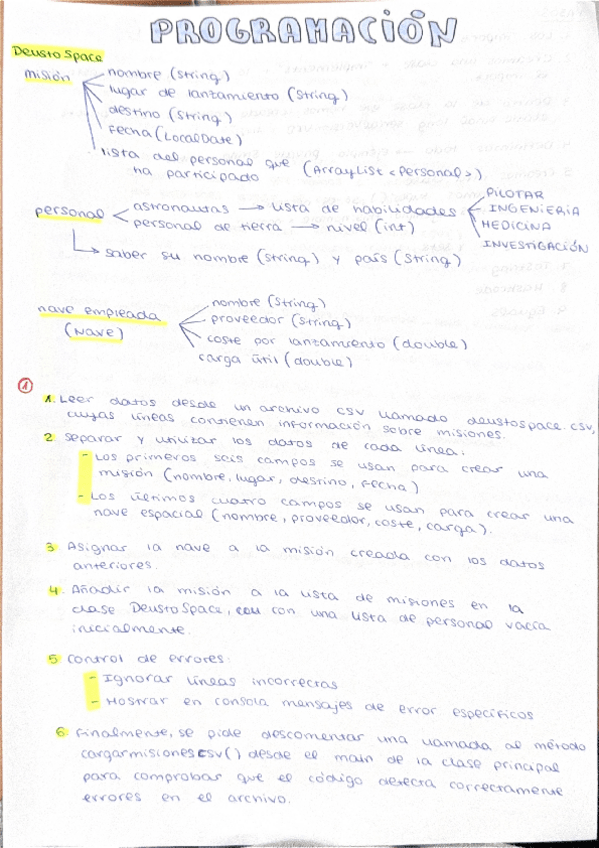 PROGRAMACIÓN
DeustoSpace
misión
nombre (String)
lugar de lanzamiento (String)
destino (String)
Fecha (LocalDate)
lista del personal que (ArrayList <Personal>)
ha participado
personal
astronautas → lista de habilidades
personal de tierra → nivel (int)
PILOTAR
INGENIERIA
MEDICINA
INVESTIGACIÓN
saber su nombre (String) y país (String)
nave empleada
(Nave)
nombre (String)
proveedor (String)
coste por lanzamiento (double)
carga útil (double)
1
1. Leer datos desde un archivo csv llamado deustospace.csv,
cuyas líneas contienen información sobre misiones.
2. Separar y utilizar los datos de cada línea:
- Los primeros seis campos se usan para crear una
misión (nombre, lugar, destino, fecha)
- Los últimos cuatro campos se usan para crear una
nave espacial (nombre, proveedor, coste, carga).
3 Asignar la nave a la misión creada con los datos
anteriores.
4. Añadir la misión a la lista de misiones en la
clase DeustoSpace, con una lista de personal vacía
inicialmente.
5 Control de errores:
- Ignorar líneas incorrectas
- Mostrar en consola mensajes de error específicos
6 Finalmente, se pide descomentar una llamada al método
cargarmisionescsv() desde el main de la clase principal
para comprobar que el código detecta correctamente
errores en el archivo.